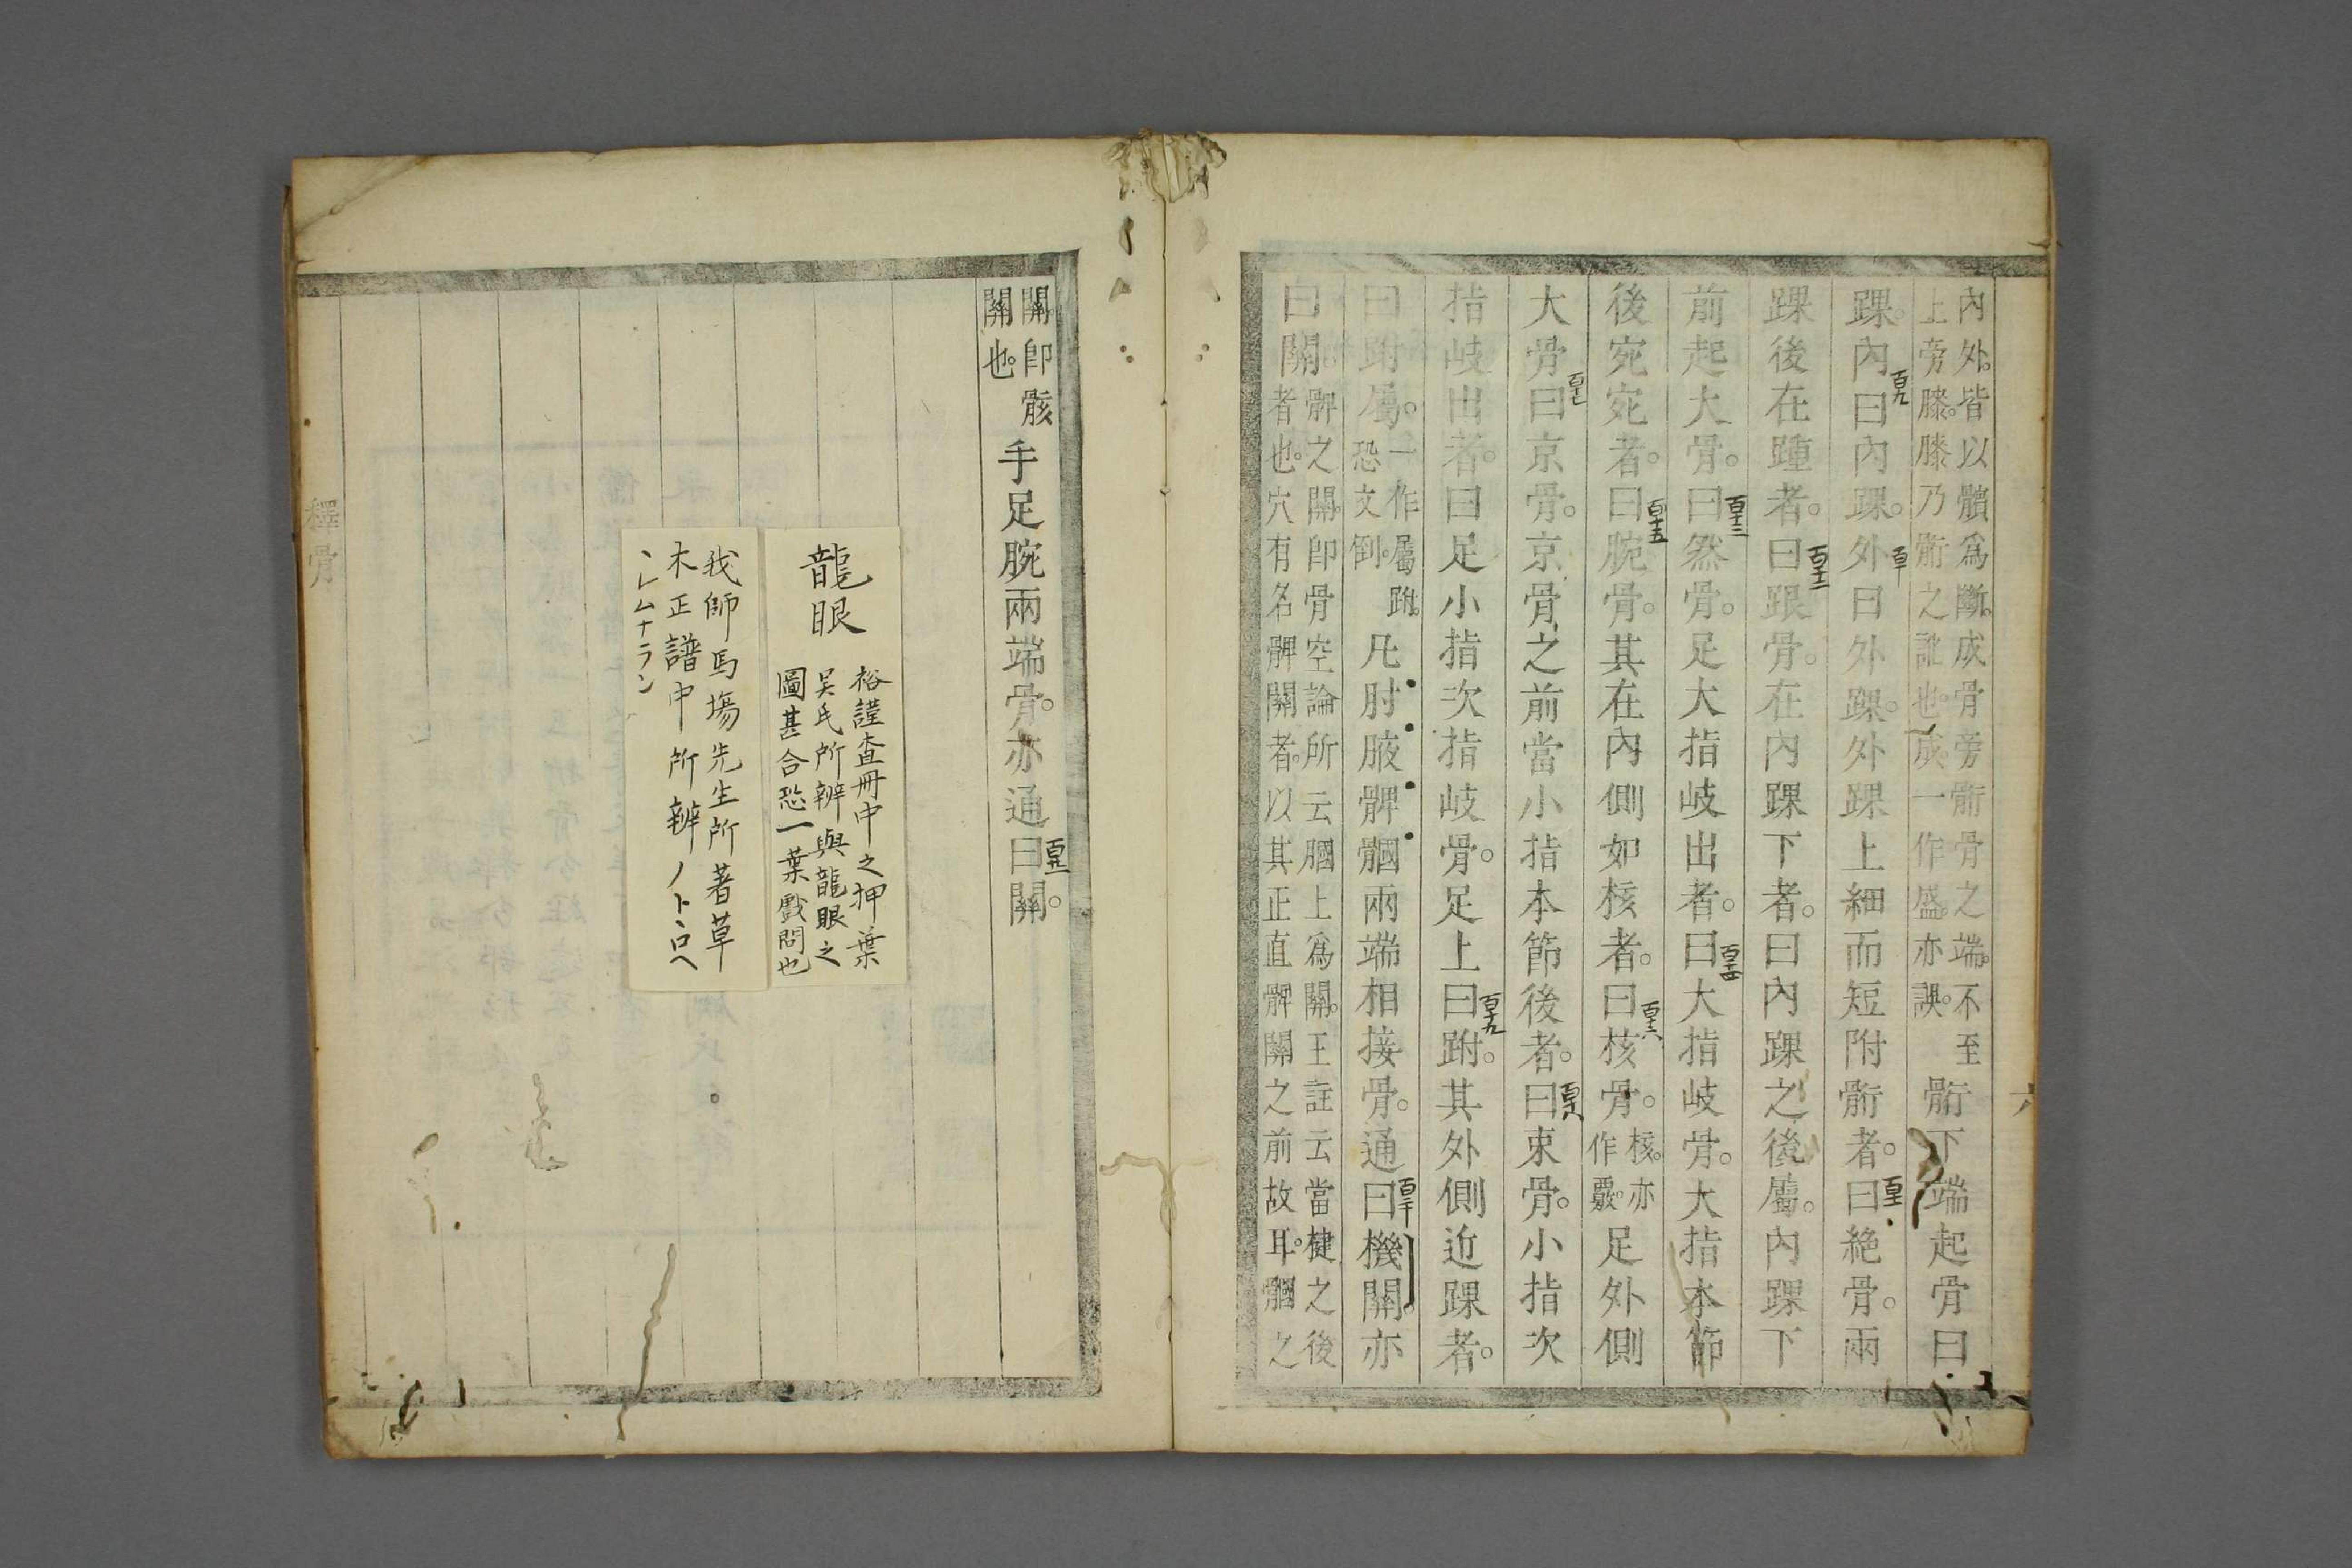 內外。皆以髕爲斷。成骨旁䯒骨之端。不至
上旁膝。膝乃䯒之訛也。成一作盛。亦誤。
䯒下端起骨曰
踝。內曰內踝。外曰外踝。外踝上細而短附䯒者。曰絶骨。兩
百九
百十
百十一
踝後在踵者。曰跟骨。在內踝下者。曰內踝之後屬。內踝下
百十二
前起大骨。曰然骨。足大指岐出者。曰大指岐骨。大指本節
百十三
百十四
後宛宛者。曰腕骨。其在內側如核者。曰核骨。
核。亦
作覈。
足外側
百十五
百十六
大骨曰京骨。京骨之前當小指本節後者。曰束骨。小指次
百十七
百十八
指岐出者。曰足小指次指岐骨。足上曰跗。其外側近踝者。
百十九
曰跗屬。
一作屬跗。
恐文倒。
凡肘腋髀膕兩端相接骨。通曰機關。亦
百二十
曰關。
髀之關。卽骨空論所云膕上爲關。王註云當楗之後
者也。穴有名髀關者。以其正直髀關之前故耳。膕之
六
關。卽骸
關也。
手足腕兩端骨。亦通曰關。
龍眼
裕謹査冊中之押葉
吴氏所辨與龍眼之
圖甚合恐一葉戲問也
我師馬場先生所著草
木正譜中所辨ノトコロヘ
ヽレムナラン
釋骨